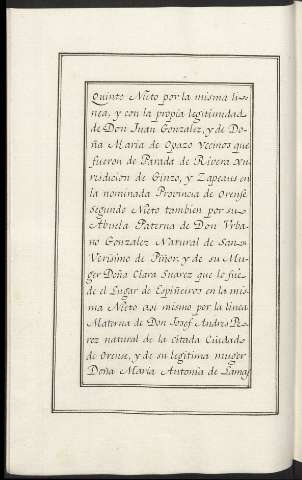 Quinto Nieto por la misma li-
nea, y con la propia legitimidad
de Don Juan Gonzalez, y de Do-
ña Maria de Opazo vecinos que
fueron de Parada de Rivera Ju-
risdicion de Ginzo, y Zapeaus en
la nominada Provincia de Orense
Segundo Nieto tambien por su
Abuela Paterna de Don Vrba-
no Gonzalez Natural de San
Verisimo de Piñor, y de su Mu-
ger Doña Clara Suarez que lo fue
de el Lugar de Espiñeiros en la mis-
ma Nieto asi mismo por la linea
Materna de Don Josef Andres Pe-
rez natural de la citada Ciudad
de Orense, y de su legitima muger
Doña Maria Antonia de Lamas